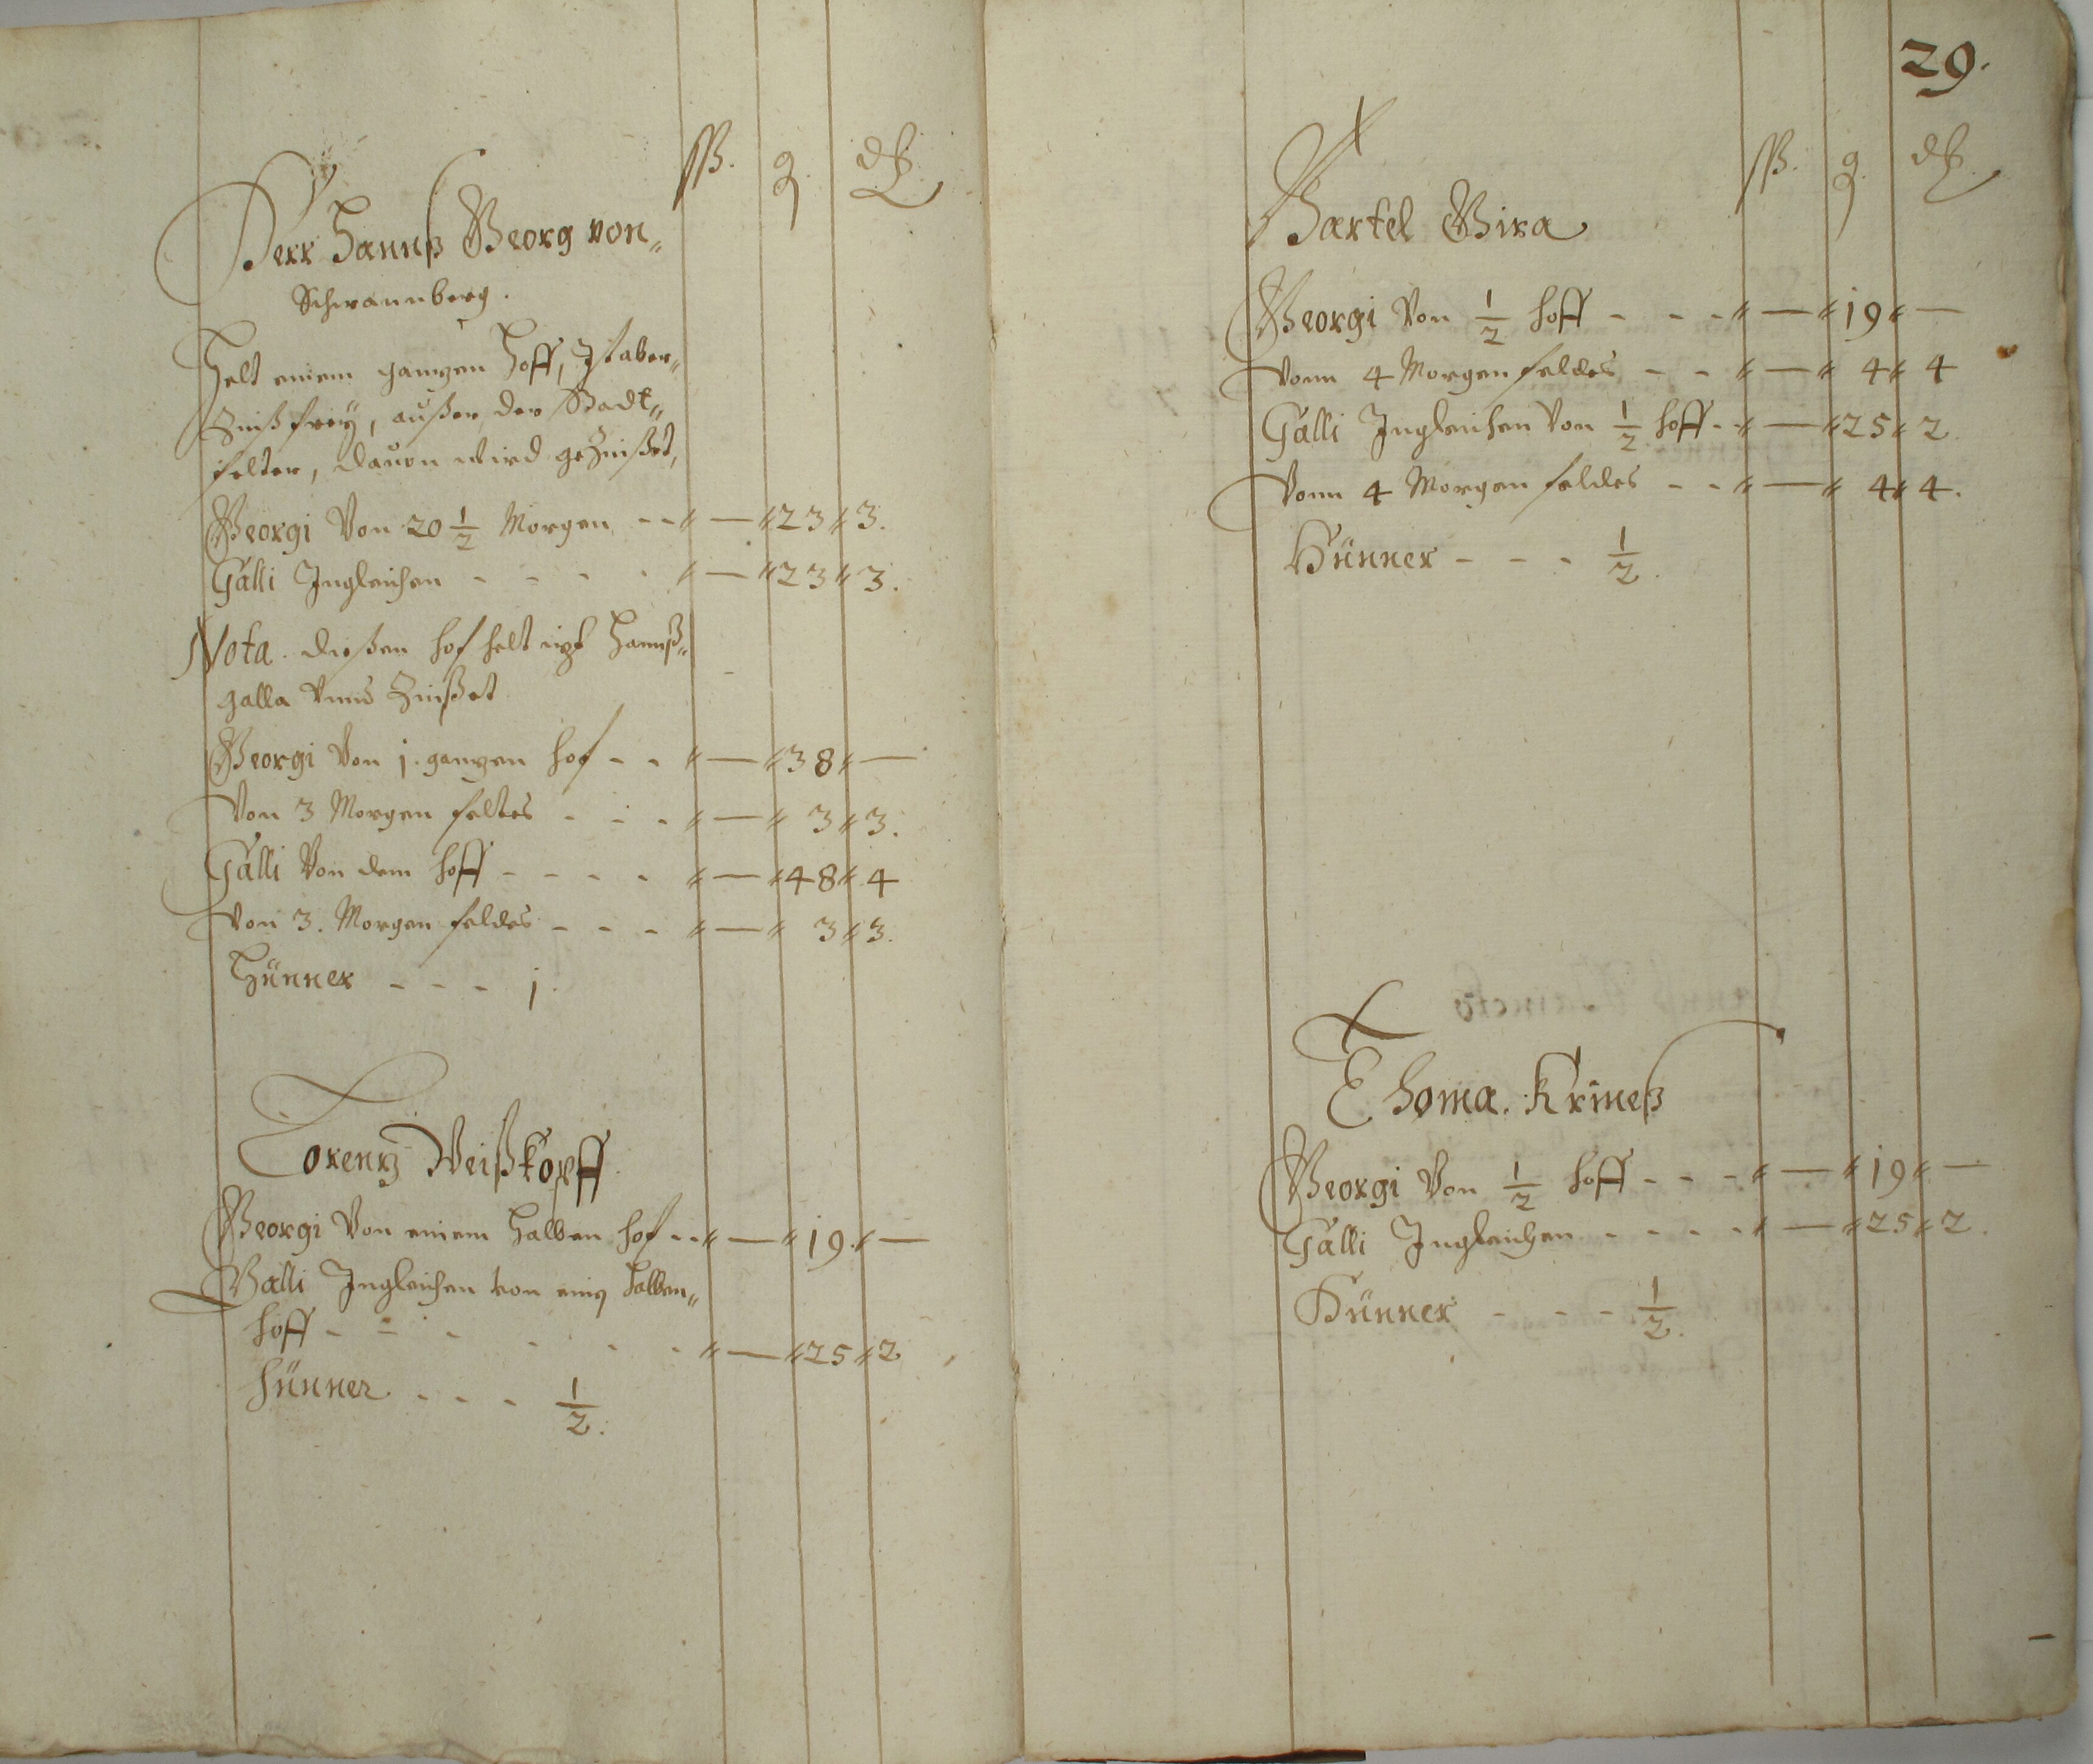 ßß. g. d.
Herr Hannß Georg von„
Schwannberg.
Helt einem ganzen Hoff, Ist aber„
Zinß frey, außer der Stadt„
felter, dauon wird geZinßet,
Georgi Von 20 1/2 Morgen -- „ — „ 23 „ 3.
Galli Ingleichen - - - - „ — „ 23 „ 3.
Nota. dießen hof helt izt Hannß„
galla Vnnd Zinßet
Georgi Von j. ganzen hof - - „ — „ 38 „ —
Von 3 Morgen feltes - - - „ — „ 3 „ 3.
Galli Von dem hoff - - - - „ — „ 48 „ 4
Von 3. Morgen feldes - - - „ — „ 3 „ 3.
Hünner - - - j.
Lorenz Weißkopff
Georgi Von einem halben hof -- „ — „ 19 „ —
Galli Ingleichen von einē halben„
hoff - - - - - - „ — „ 25 „ 2
hünner - - - 1/2.
29.
ßß. g. d.
Bartel Gira
Georgi Von 1/2 hoff - - - „ — „ 19 „ —
Vonn 4 Morgen feldes - - „ — „ 4 „ 4
Galli Ingleichen Von 1/2 hoff - „ — „ 25 „ 2
Vonn 4 Morgen feldes - - „ — „ 4 „ 4.
Hünner - - - 1/2.
Thoma. Krineß
Georgi Von 1/2 hoff - - - „ — „ 19 „ —
Galli Ingleichen - - - - „ — „ 25 „ 2.
Hünner - - - 1/2.